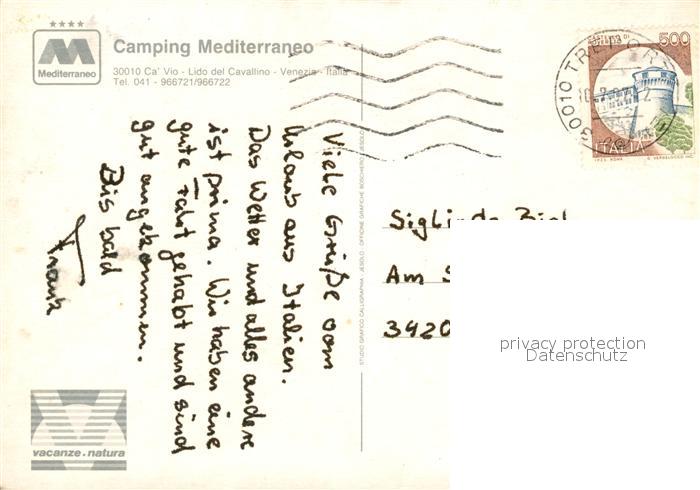 Mediterraneo
Camping Mediterraneo
30010 Ca' Vio - Lido del Cavallino - Venezia - Italia
Tel. 041 - 966721/966722
Viele Grüße vom
Urlaub aus Italien.
Das Wetter und alles andere
ist prima. Wir haben eine
gute Fahrt gehabt und sind
gut angekommen.
Bis bald
Frank
vacanze.natura
STUDIO GRAFICO CALLIGRAPHIA - JESOLO - OFFICINE GRAFICHE BOSCHIERO - JESOLO
500
ITALIA
30010 TREPORTI
Siglinde
Am
3420
privacy protection
Datenschutz